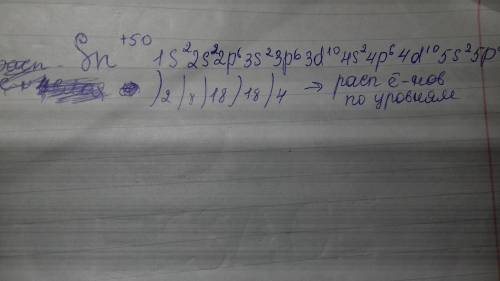 Sn +50 1S² 2S² 2p⁶ 3S² 3p⁶ 3d¹⁰ 4S² 4p⁶ 4d¹⁰ 5S² 5p
)2)8)18)18)4 → расп ē-нов
по уровням